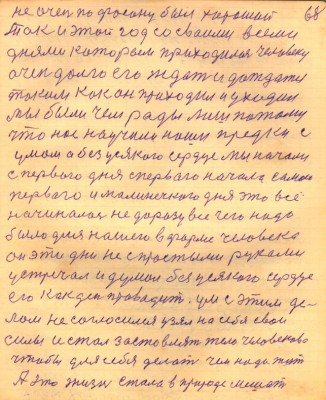 68
не очен по фасону был хороший
Так и этой год со своими всеми
днями которым приходился человеку
очен долго его ждат и дождати
таким как он приходил и уходил
мы были чем рады лиш потому
что нас научили наши предки с
умом а без усякого сердце мы начали
с первого дня с первого начала самого
первого и малинечкого дня это всё
началос не даразу все чего надо
было для нашего в форме человека
он эти дни не спростыми руками
устречал и думал без усякого сердце
его как ден провадит. ум с этим де-
лом не согласился узял на себя свои
силы и стал заставлят тело человеково
чтобы для себя делат чем надо жит
А это жизн стала в природе мешат